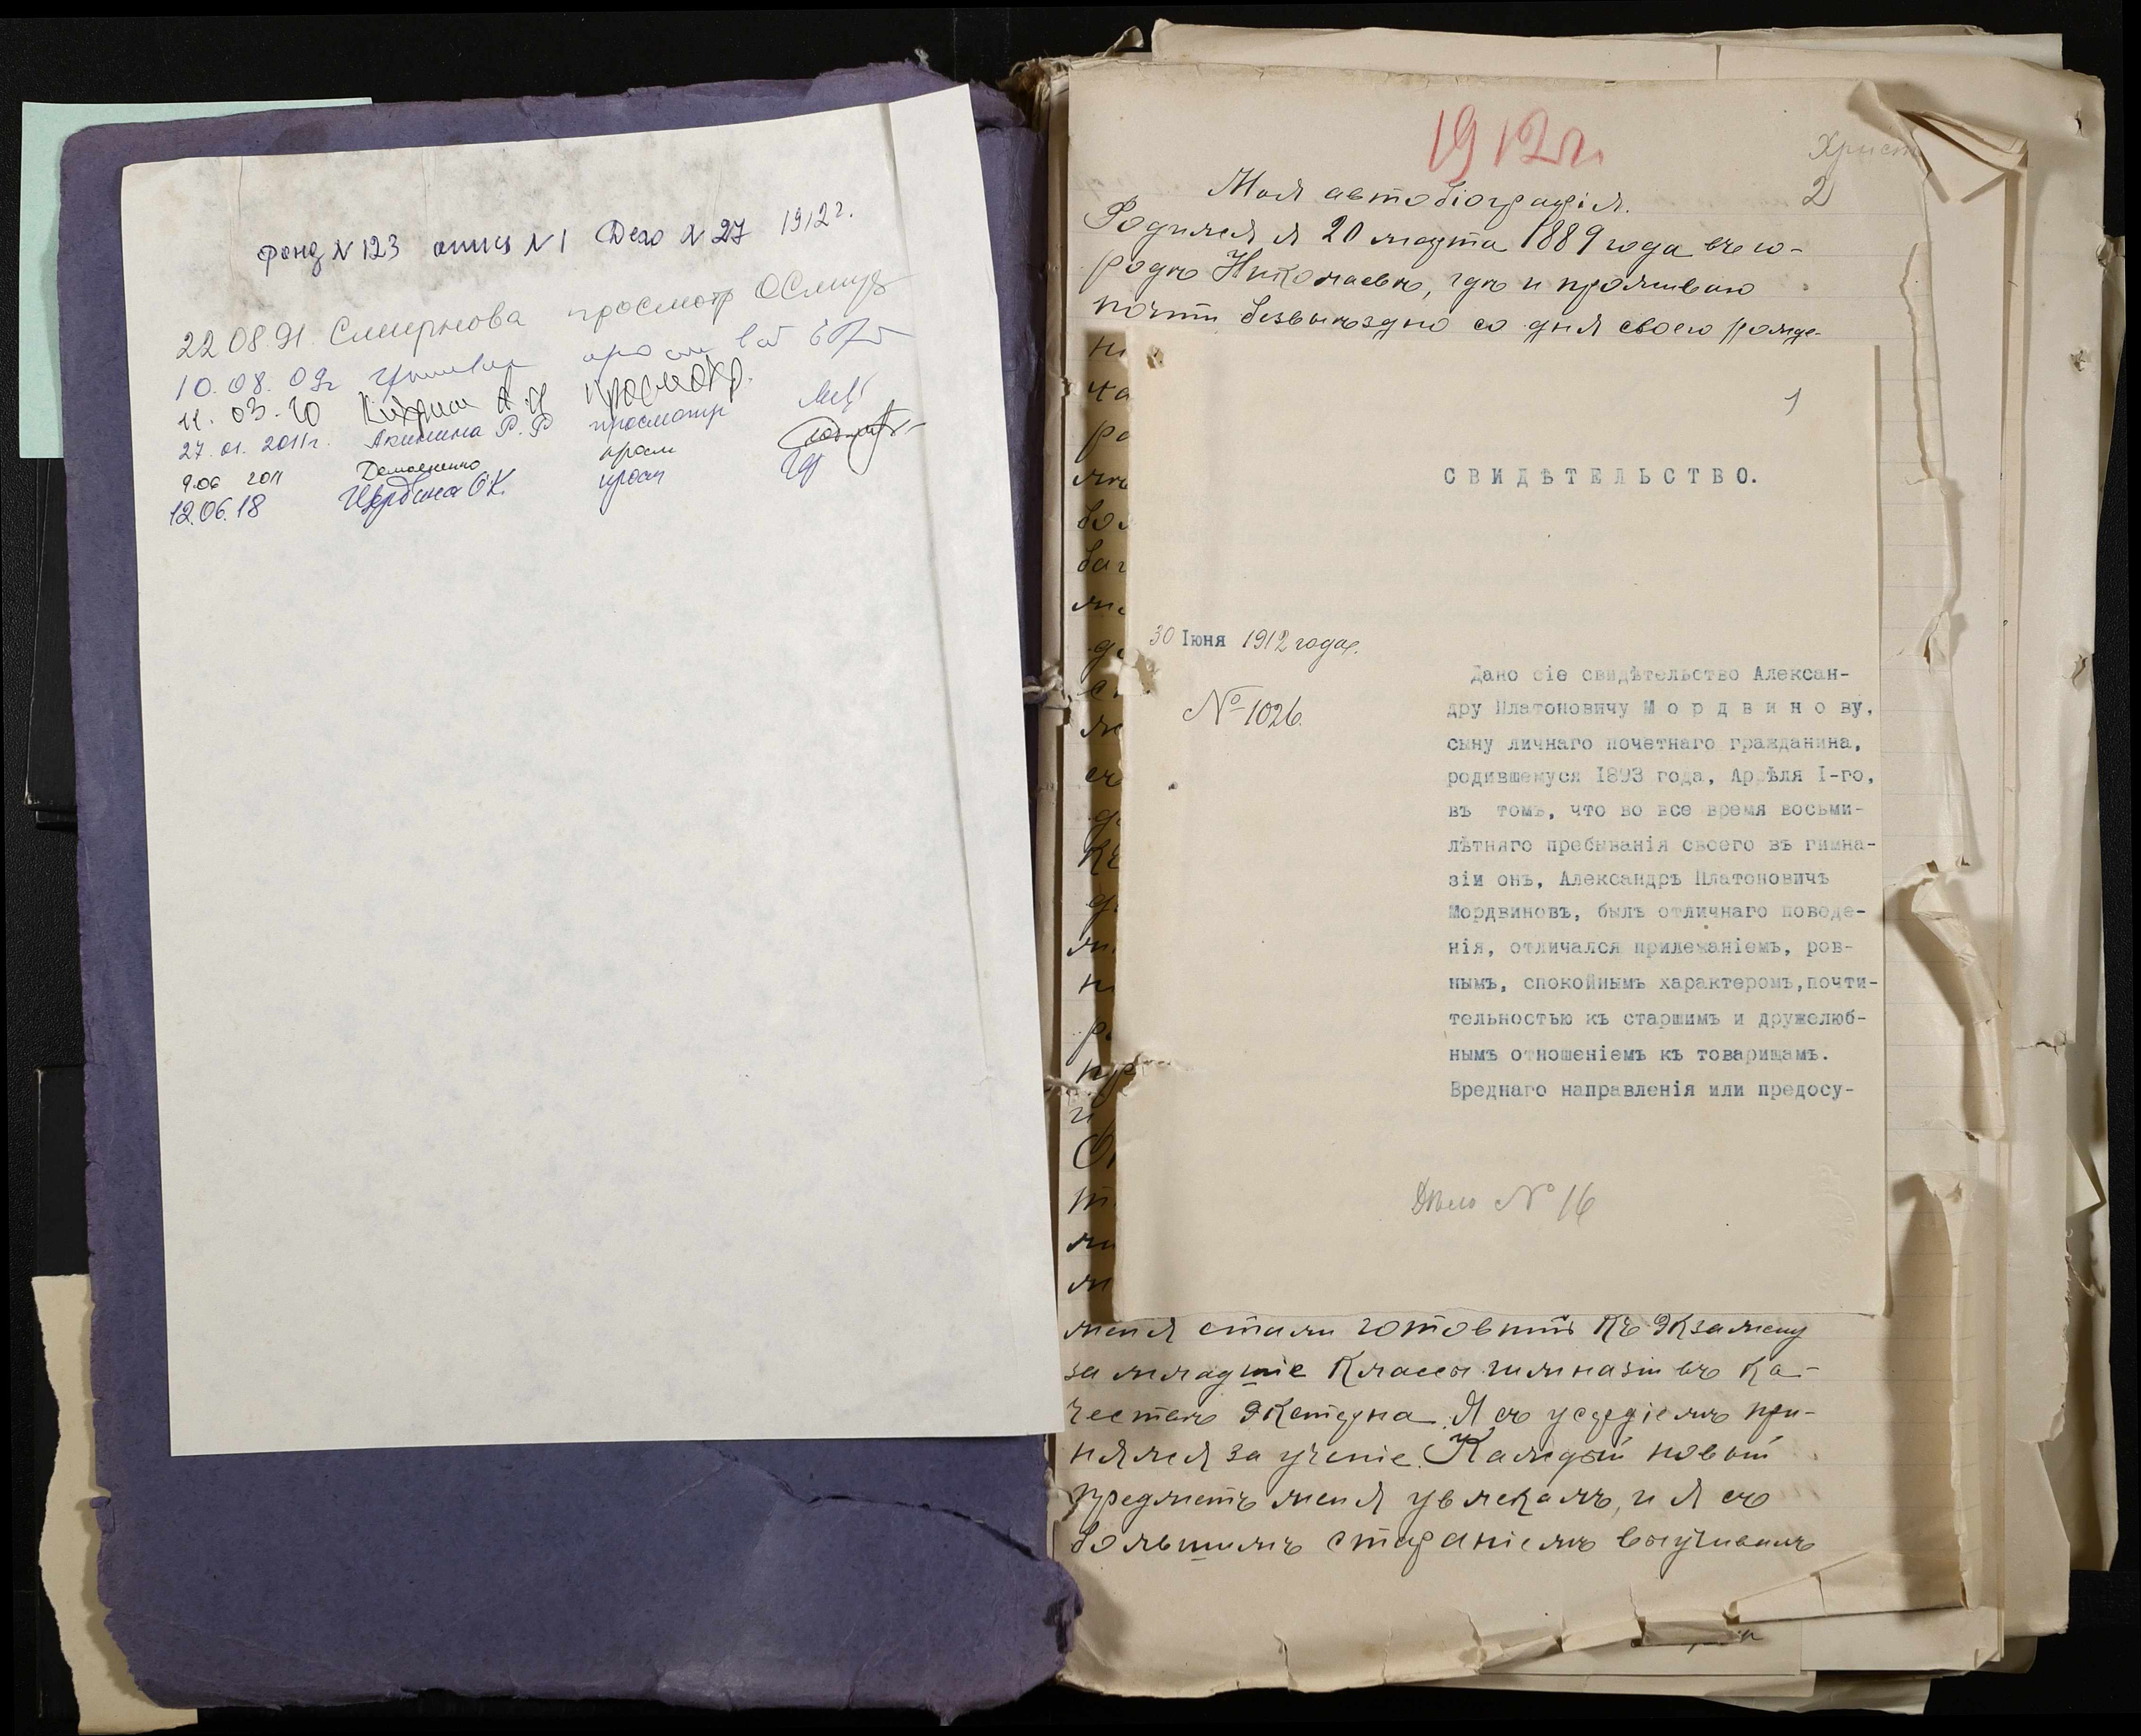 фонд N 123 опись N 1 Дело N 27 1912 г.
22 08.91. Смирнова просмотр ОСмир
10.08.09г
11.03.10 А. просмотр.
27.01.2011г. Акинина Р.Р просмотр
9.06 2011 Демосненко просм
12.06.18 Щербина О.К. просм
1912 г.
Христ
2
Моя автобіографія.
Родился я 20 марта 1889 года въ го-
родѣ Николаевѣ, гдѣ и проживаю
почти безвыѣздно со дня своего рожде-
1
СВИДѢТЕЛЬСТВО.
30 Іюня 1912 года.
№ 1026.
Дано сіе свидѣтельство Алексан-
дру Платоновичу Мордвинову,
сыну личнаго почетнаго гражданина,
родившемуся 1893 года, Арѣля I-го,
въ томъ, что во все время восьми-
лѣтняго пребыванія своего въ гимна-
зіи онъ, Александръ Платоновичъ
Мордвиновъ, былъ отличнаго поведе-
нія, отличался прилежаніемъ, ров-
нымъ, спокойнымъ характеромъ,почти-
тельностью къ старшимъ и дружелюб-
нымъ отношеніемъ къ товарищамъ.
Вреднаго направленія или предосу-
Дѣло № 16
меня стали готовить къ экзамену
за младшіе классы гимназіи въ ка-
чествѣ экстерна. Я съ усердіемъ при-
нялся за ученіе. Каждый новый
предметъ меня увлекалъ, и я съ
большимъ стараніемъ выучивалъ